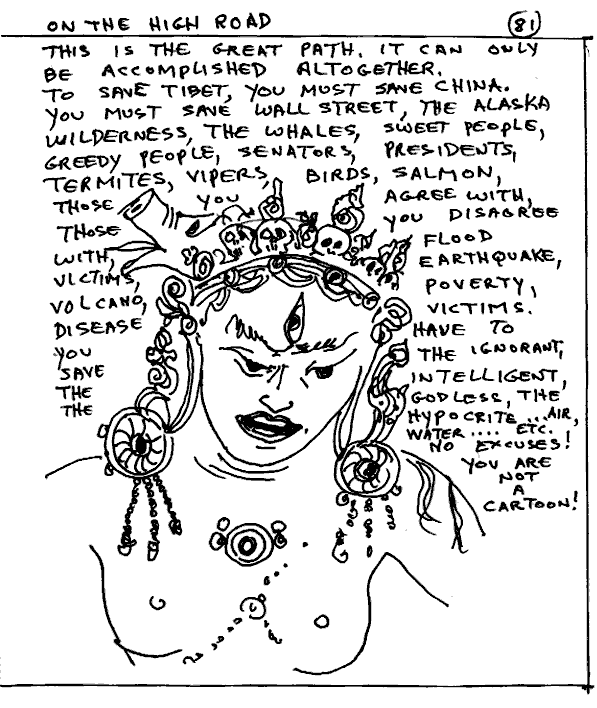 ON THE HIGH ROAD 81
THIS IS THE GREAT PATH. IT CAN ONLY
BE ACCOMPLISHED ALTOGETHER.
TO SAVE TIBET, YOU MUST SAVE CHINA.
YOU MUST SAVE WALL STREET, THE ALASKA
WILDERNESS, THE WHALES, SWEET PEOPLE,
GREEDY PEOPLE, SENATORS, PRESIDENTS,
TERMITES, VIPERS, BIRDS, SALMON,
THOSE YOU AGREE WITH,
THOSE YOU DISAGREE
WITH, FLOOD
VICTIMS, EARTHQUAKE,
VOLCANO, POVERTY,
DISEASE VICTIMS.
YOU HAVE TO
SAVE THE IGNORANT,
THE INTELLIGENT,
THE GODLESS, THE
HYPOCRITE ... AIR,
WATER .... ETC.
NO EXCUSES!
YOU ARE
NOT
A
CARTOON!